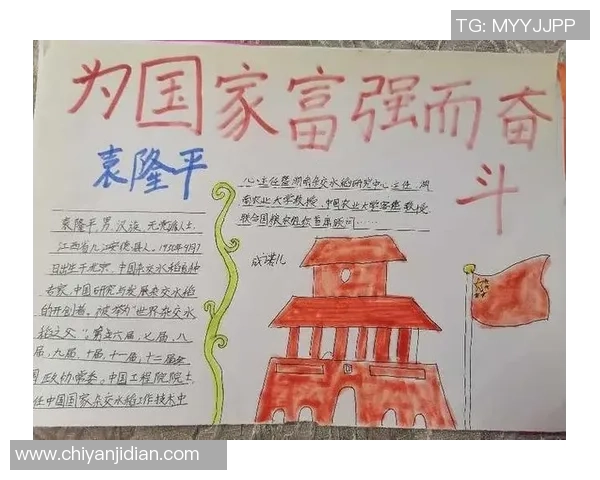 TG: MYYJJPP
为国家富强而奋
斗
袁隆平
袁隆平,男,汉族,无党派人士,
江西省九江安德县人。1930年9月7
日出生于北京,中国杂交水稻育种
专家,中国研究与发展杂交水稻
的开创者。被誉为"世界杂交水
稻之父"。第五六届,七届,八
届,九届,十届,十一届,十二届全
国政协常委。中国工程院院士,
任中国国家杂交水稻工作技术中
心主任暨湖南杂交水稻研究中心主任,湖
南农业大学教授,中国农业大学客座教授,
联合国粮农组织首席顾问……
成诺儿
www.chiyanjidian.com